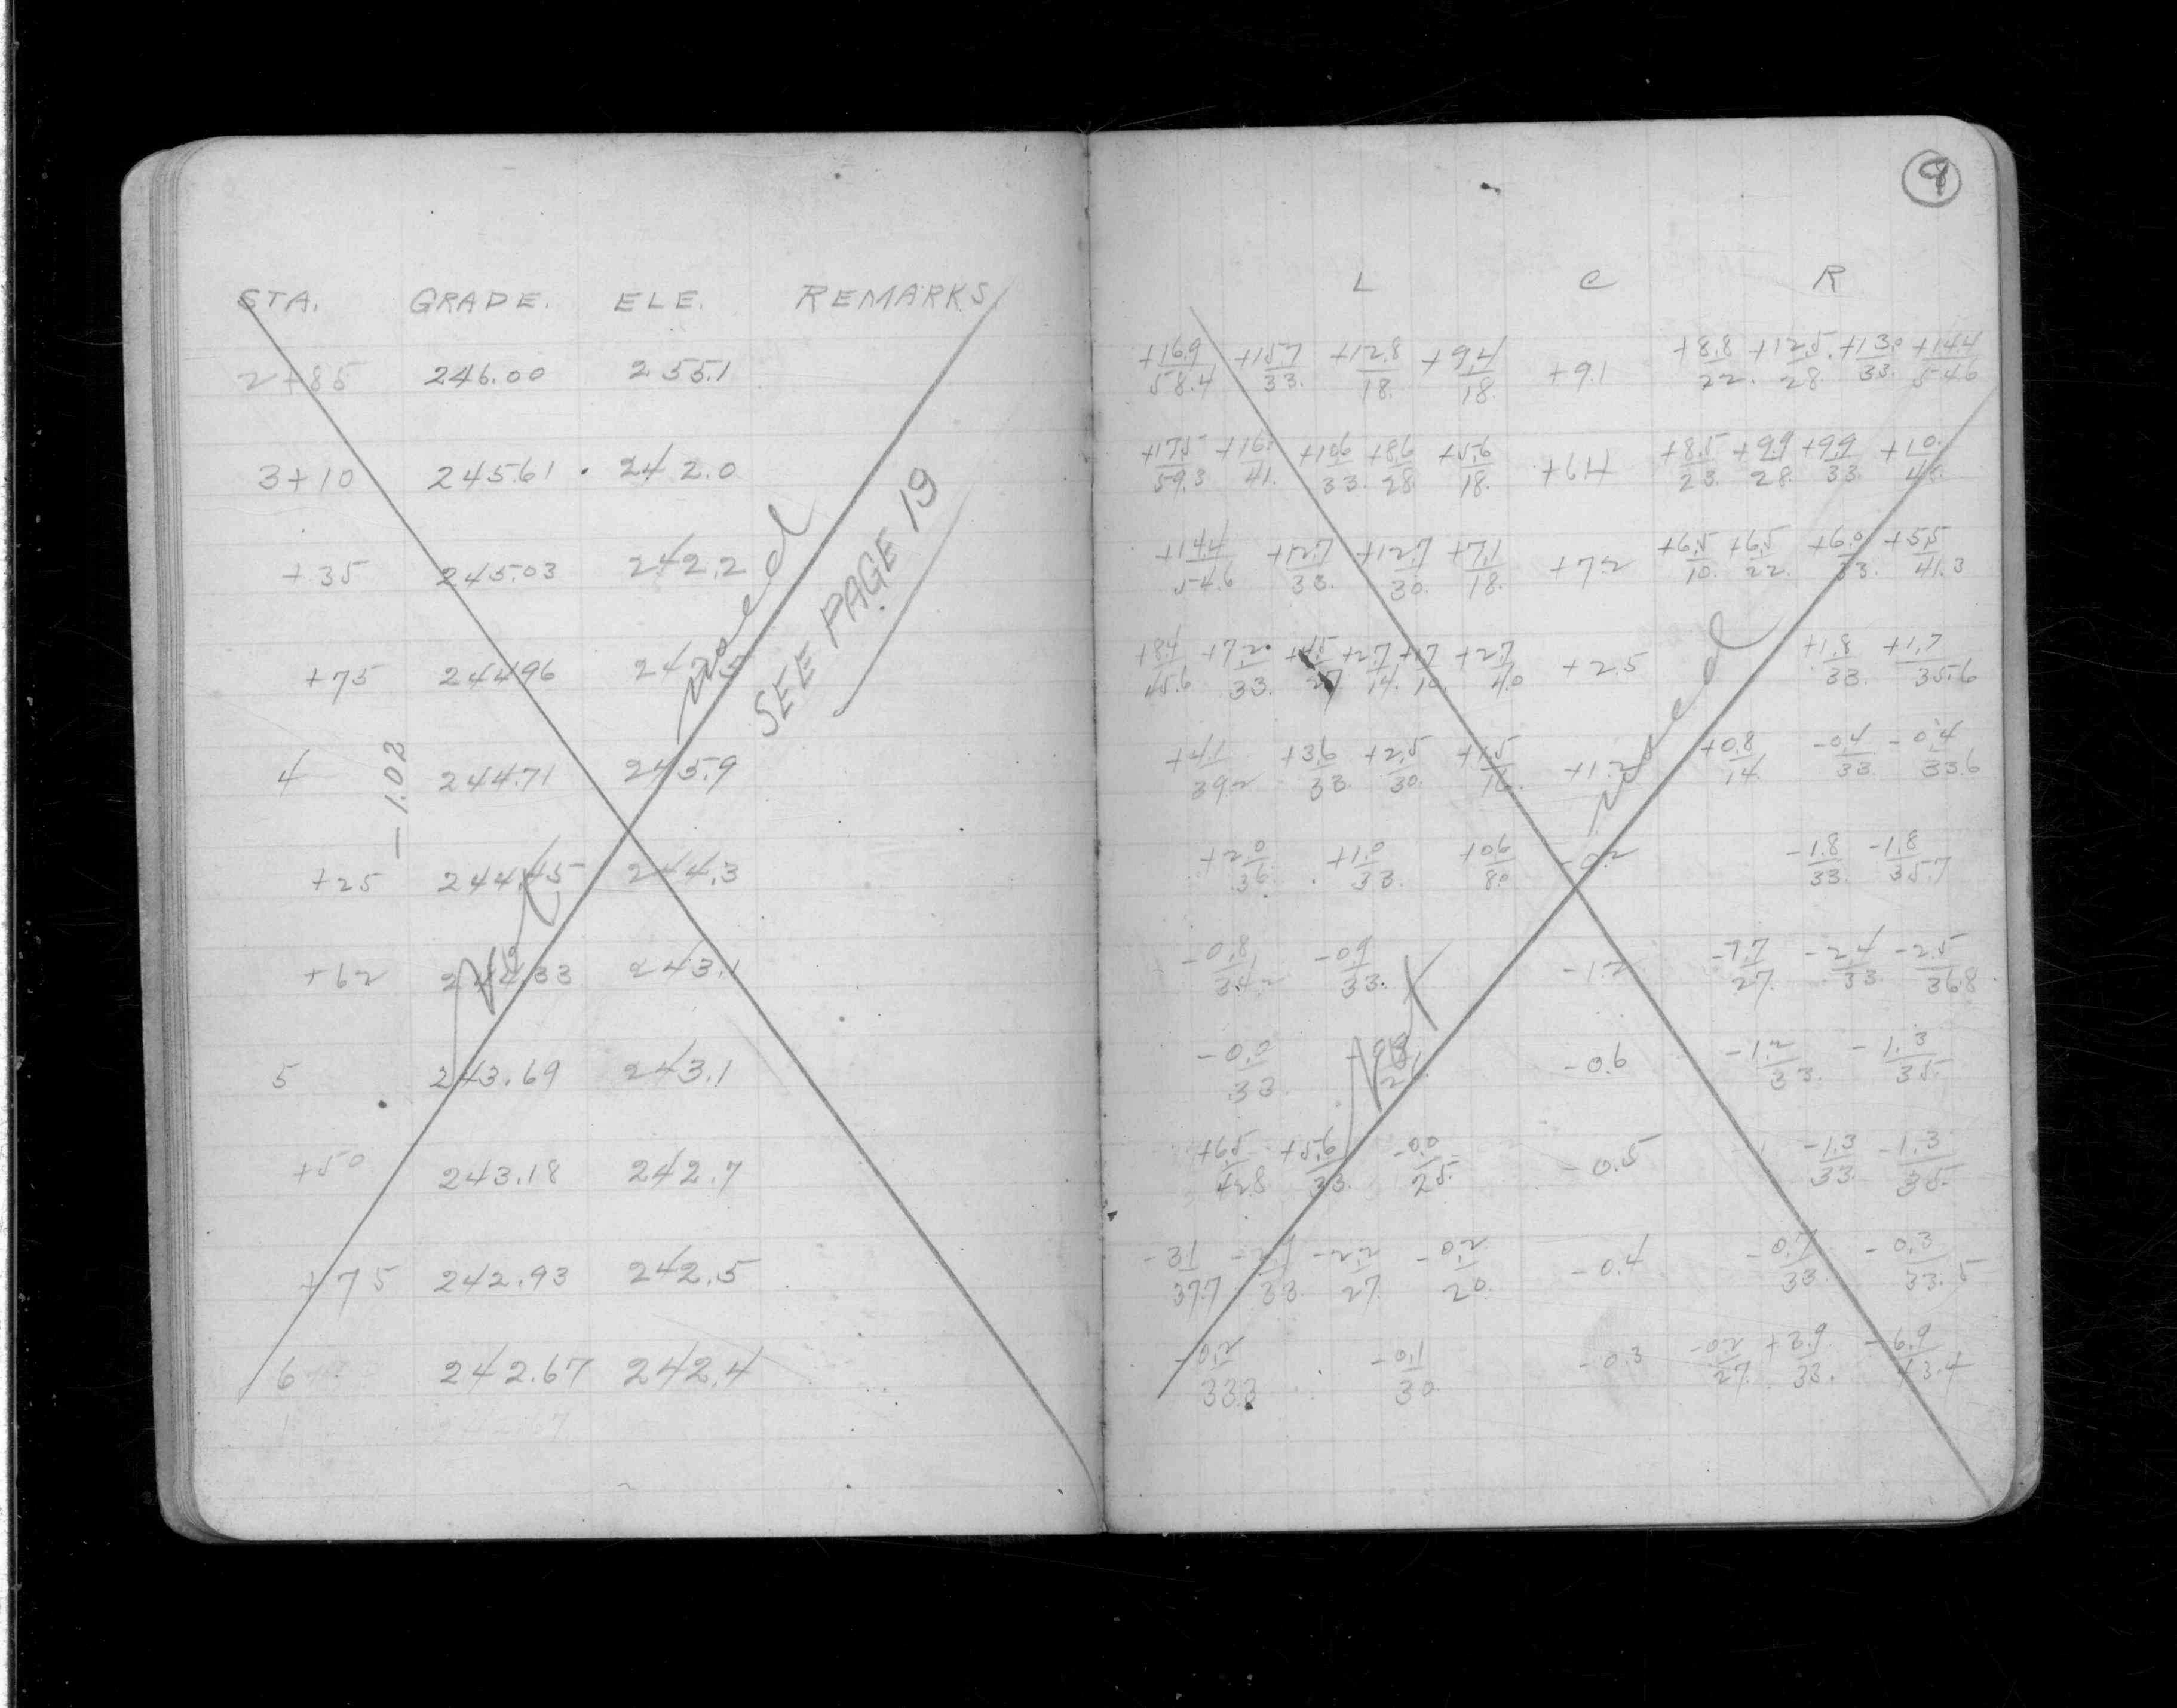 STA. GRADE. ELE. REMARKS
2+85 246.00 255.1
3+10 245.61 242.0
+35 245.03 242.2
+75 244.96
4 244.71 245.9
- 1.02
+25 244.45 244.3
+62 244.33 243.1
5 243.69 243.1
+50 243.18 242.7
+75 242.93 242.5
6 242.67 242.4
Not used
SEE PAGE 19
L C R
+16.9/58.4 +15.7/33. +12.8/18. +9.4/18. +9.1 +8.8/22. +12.5/28. +13.0/33. +14.4/54.6
+17.5/59.3 +16./41. +10.6/33. +8.6/28. +5.6/18. +6.4 +8.5/23. +9.9/28. +9.9/33. +10.
+14.4/54.6 +12.7/33. +12.7/30. +7.1/18. +7.2 +6.5/10. +6.5/22. +6.0/33. +5.5/41.3
+8.4/45.6 +7.2/33. +2.7/14. +2.7/4.0 +2.5 +1.8/33. +1.7/35.6
+4.1/39.2 +3.6/33. +2.5/30. +1.5/16. +1.2 +0.8/14. -0.4/33. -0.4/33.6
+2.0/36. +1.0/33. +0.6/8.0 -0.2 -1.8/33. -1.8/35.7
-0.8/34.2 -0.9/33. -1.2 -7.7/27. -2.4/33. -2.5/36.8
-0.0/33. -0.6 -1.2/33. -1.3/35.
+6.5/42.8 +5.6/33. -0.0/25. -0.5 -1.3/33. -1.3/35.
-3.1/37.7 33. -2.2/27. -0.2/20. -0.4 33. -0.3/33.5
-0.2/33.3 -0.1/30 -0.3 -0.2/27. +3.9/33. 6.9/43.4
Not used